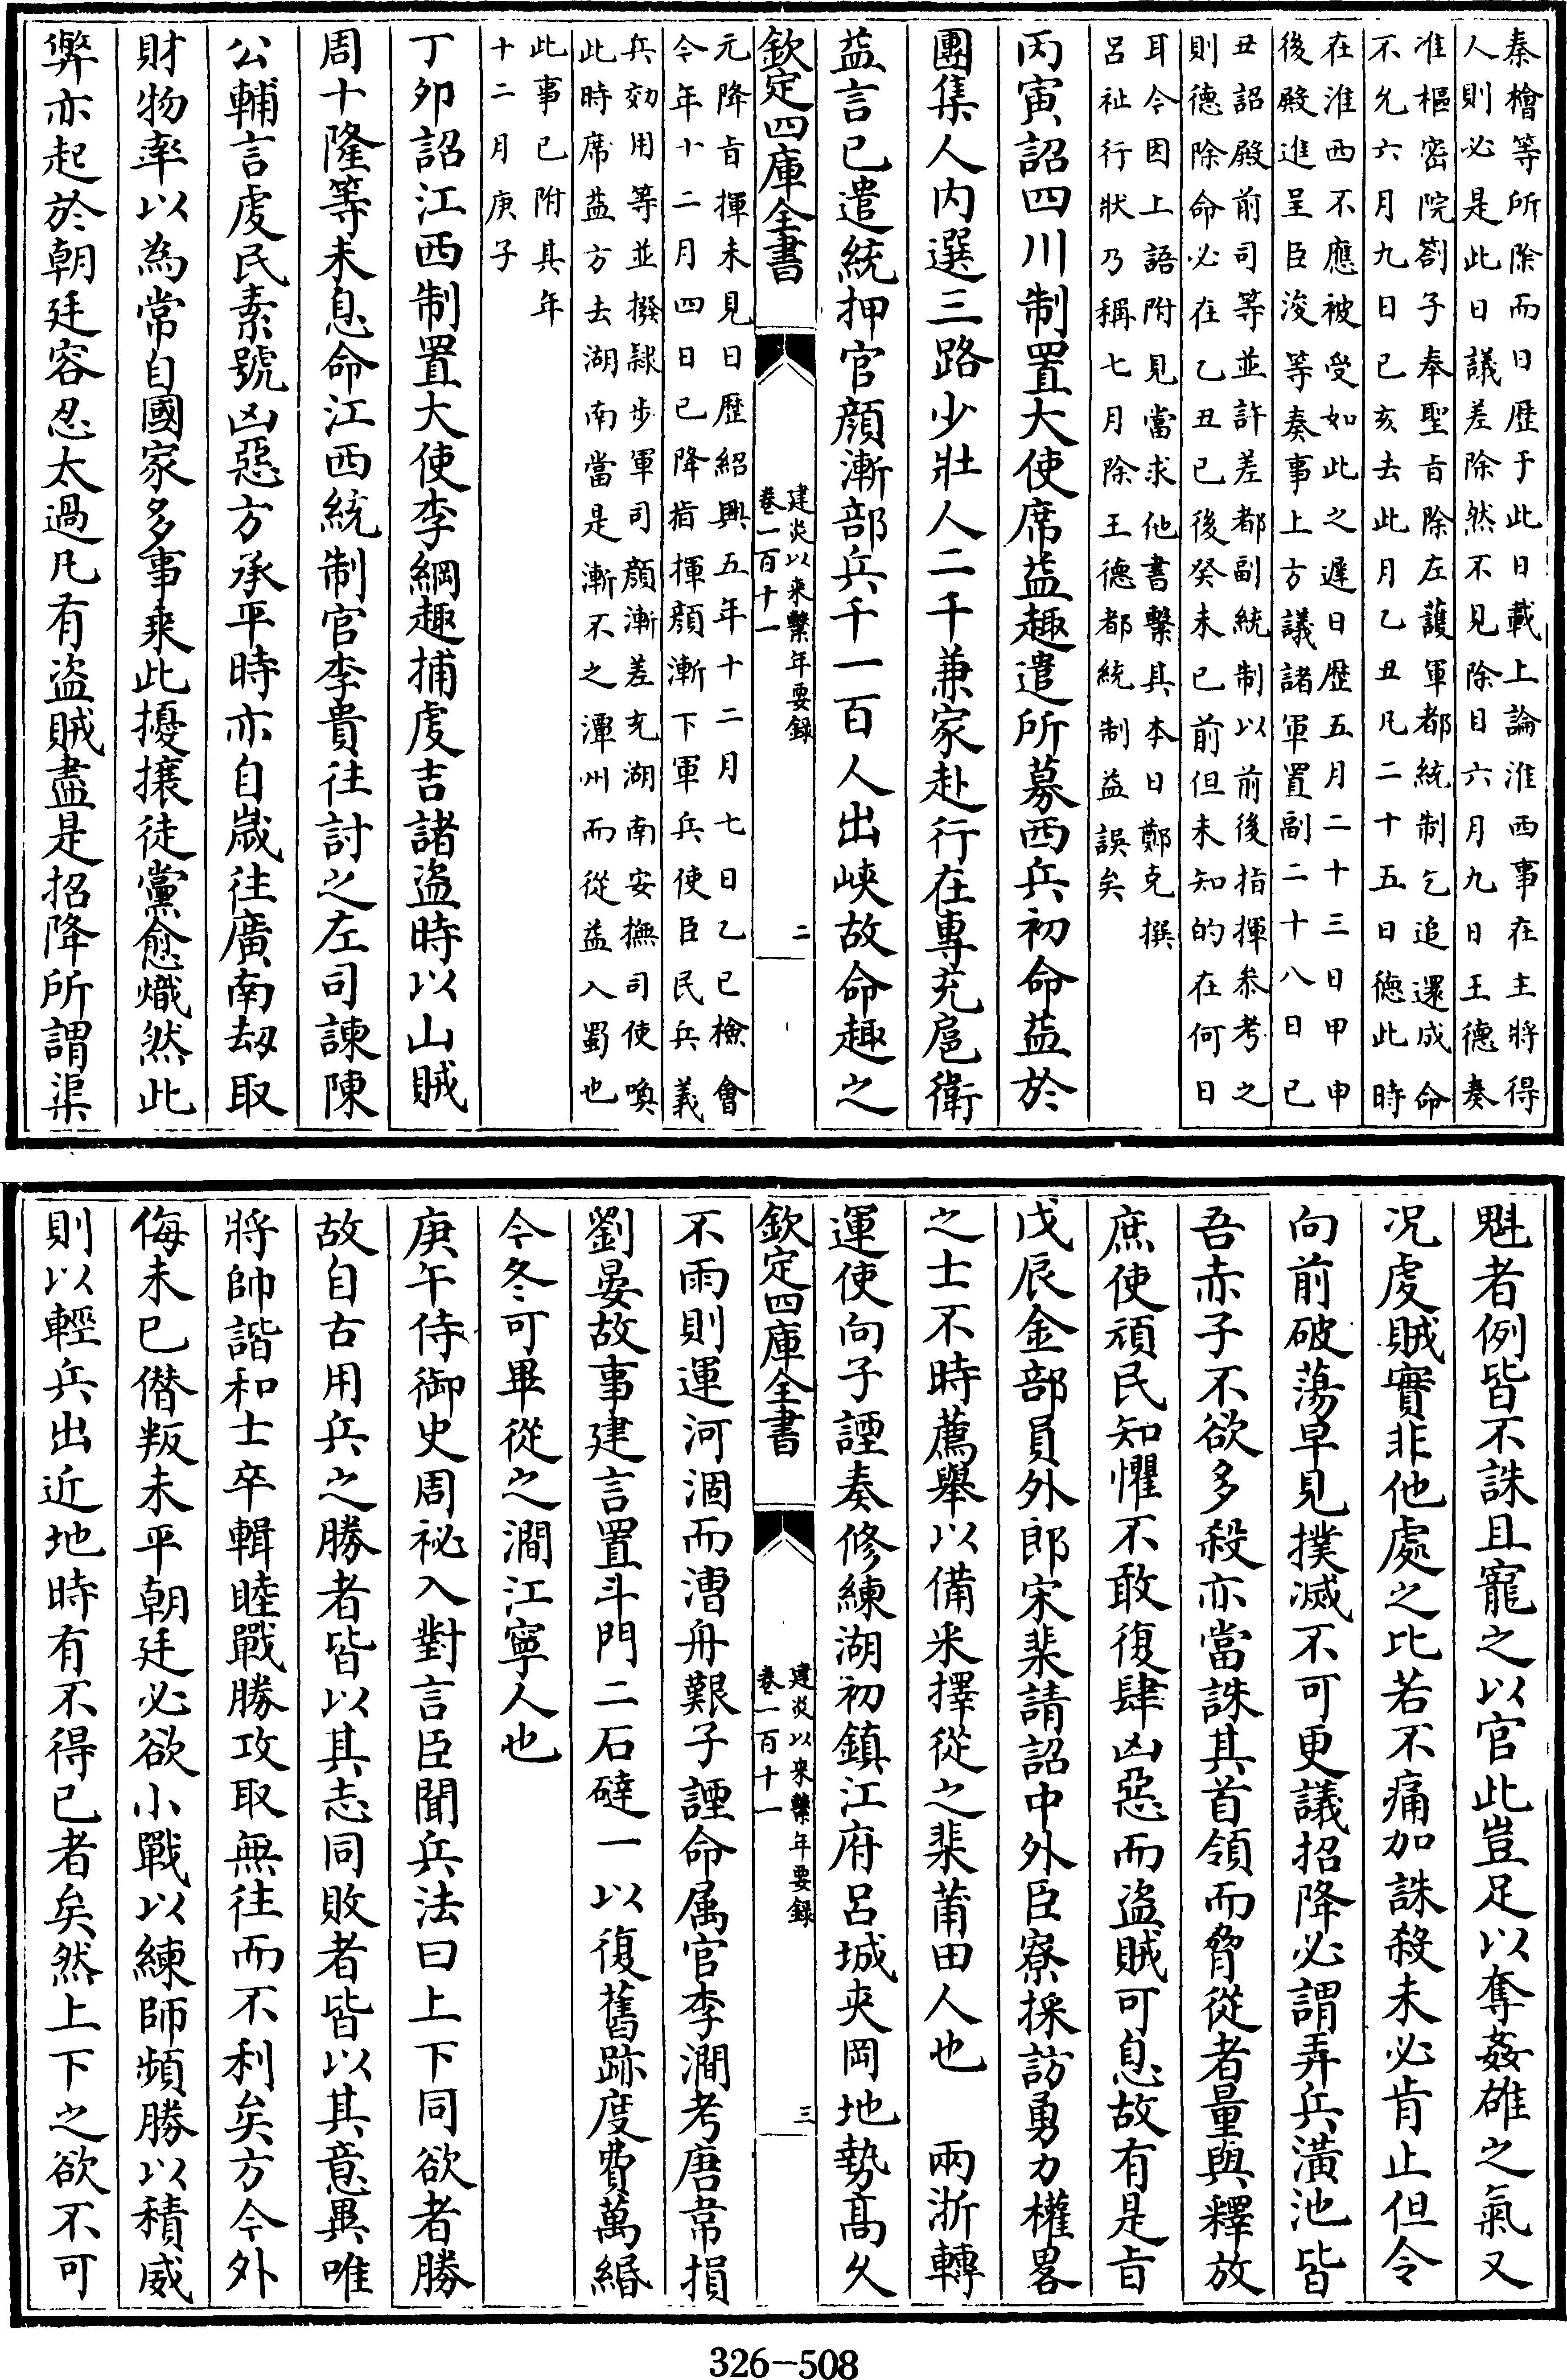 秦檜等所除而日歴于此日載上論淮西事在主將得
人則必是此日議差除然不見除日六月九日王德奏
准樞密院劄子奉聖旨除左䕶軍都統制乞追還成命
不允六月九日已亥去此月乙丑凡二十五日德此時
在淮西不應被受如此之遲日歴五月二十三日甲申
後殿進呈臣浚等奏事上方議諸軍置副二十八日已
丑詔殿前司等並許差都副統制以前後指揮叅考之
則德除命必在乙丑已後癸未已前但未知的在何日
耳今因上語附見當求他書繫具本日鄭克撰
呂祉行狀乃稱七月除王德都統制益誤矣
丙寅詔四川制置大使席益趣遣所募西兵初命益於
團集人内選三路少壯人二千兼家赴行在專充扈衛
益言已遣統押官顔漸部兵千一百人出峽故命趣之
欽定四庫全書
建炎以來繫年要録
卷一百十一
二
元降旨揮未見日歴紹興五年十二月七日乙已檢會
今年十二月四日已降指揮顔漸下軍兵使臣民兵義
兵効用等並撥𨽻步軍司顔漸差充湖南安撫司使喚
此時席益方去湖南當是漸不之潭州而從益入蜀也
此事已附具年
十二月庚子
丁卯詔江西制置大使李綱趣捕虔吉諸盜時以山賊
周十隆等未息命江西統制官李貴往討之左司諫陳
公輔言虔民素號凶惡方承平時亦自嵗往廣南刼取
財物率以為常自國家多事乗此擾攘徒黨愈熾然此
弊亦起於朝廷容忍太過凡有盜賊盡是招降所謂渠
魁者例皆不誅且寵之以官此豈足以奪姦雄之氣又
况虔賊實非他處之比若不痛加誅殺未必肯止但令
向前破蕩早見撲滅不可更議招降必謂弄兵潢池皆
吾赤子不欲多殺亦當誅其首領而脅從者量與釋放
庶使頑民知懼不敢復肆凶惡而盜賊可息故有是旨
戊辰金部員外郎宋棐請詔中外臣寮採訪勇力權畧
之士不時薦舉以備采擇從之棐莆田人也　兩浙轉
運使向子諲奏修練湖初鎮江府呂城夾岡地勢髙久
欽定四庫全書
建炎以來繫年要録
卷一百十一
三
不雨則運河涸而漕舟艱子諲命属官李澗考唐韋損
劉晏故事建言置斗門二石䃮一以復舊跡度費萬緡
今冬可畢從之澗江寧人也
庚午侍御史周祕入對言臣聞兵法曰上下同欲者勝
故自古用兵之勝者皆以其志同敗者皆以其意異唯
將帥諧和士卒輯睦戰勝攻取無往而不利矣方今外
侮未已僭叛未平朝廷必欲小戰以練師頻勝以積威
則以輕兵出近地時有不得已者矣然上下之欲不可
326-508